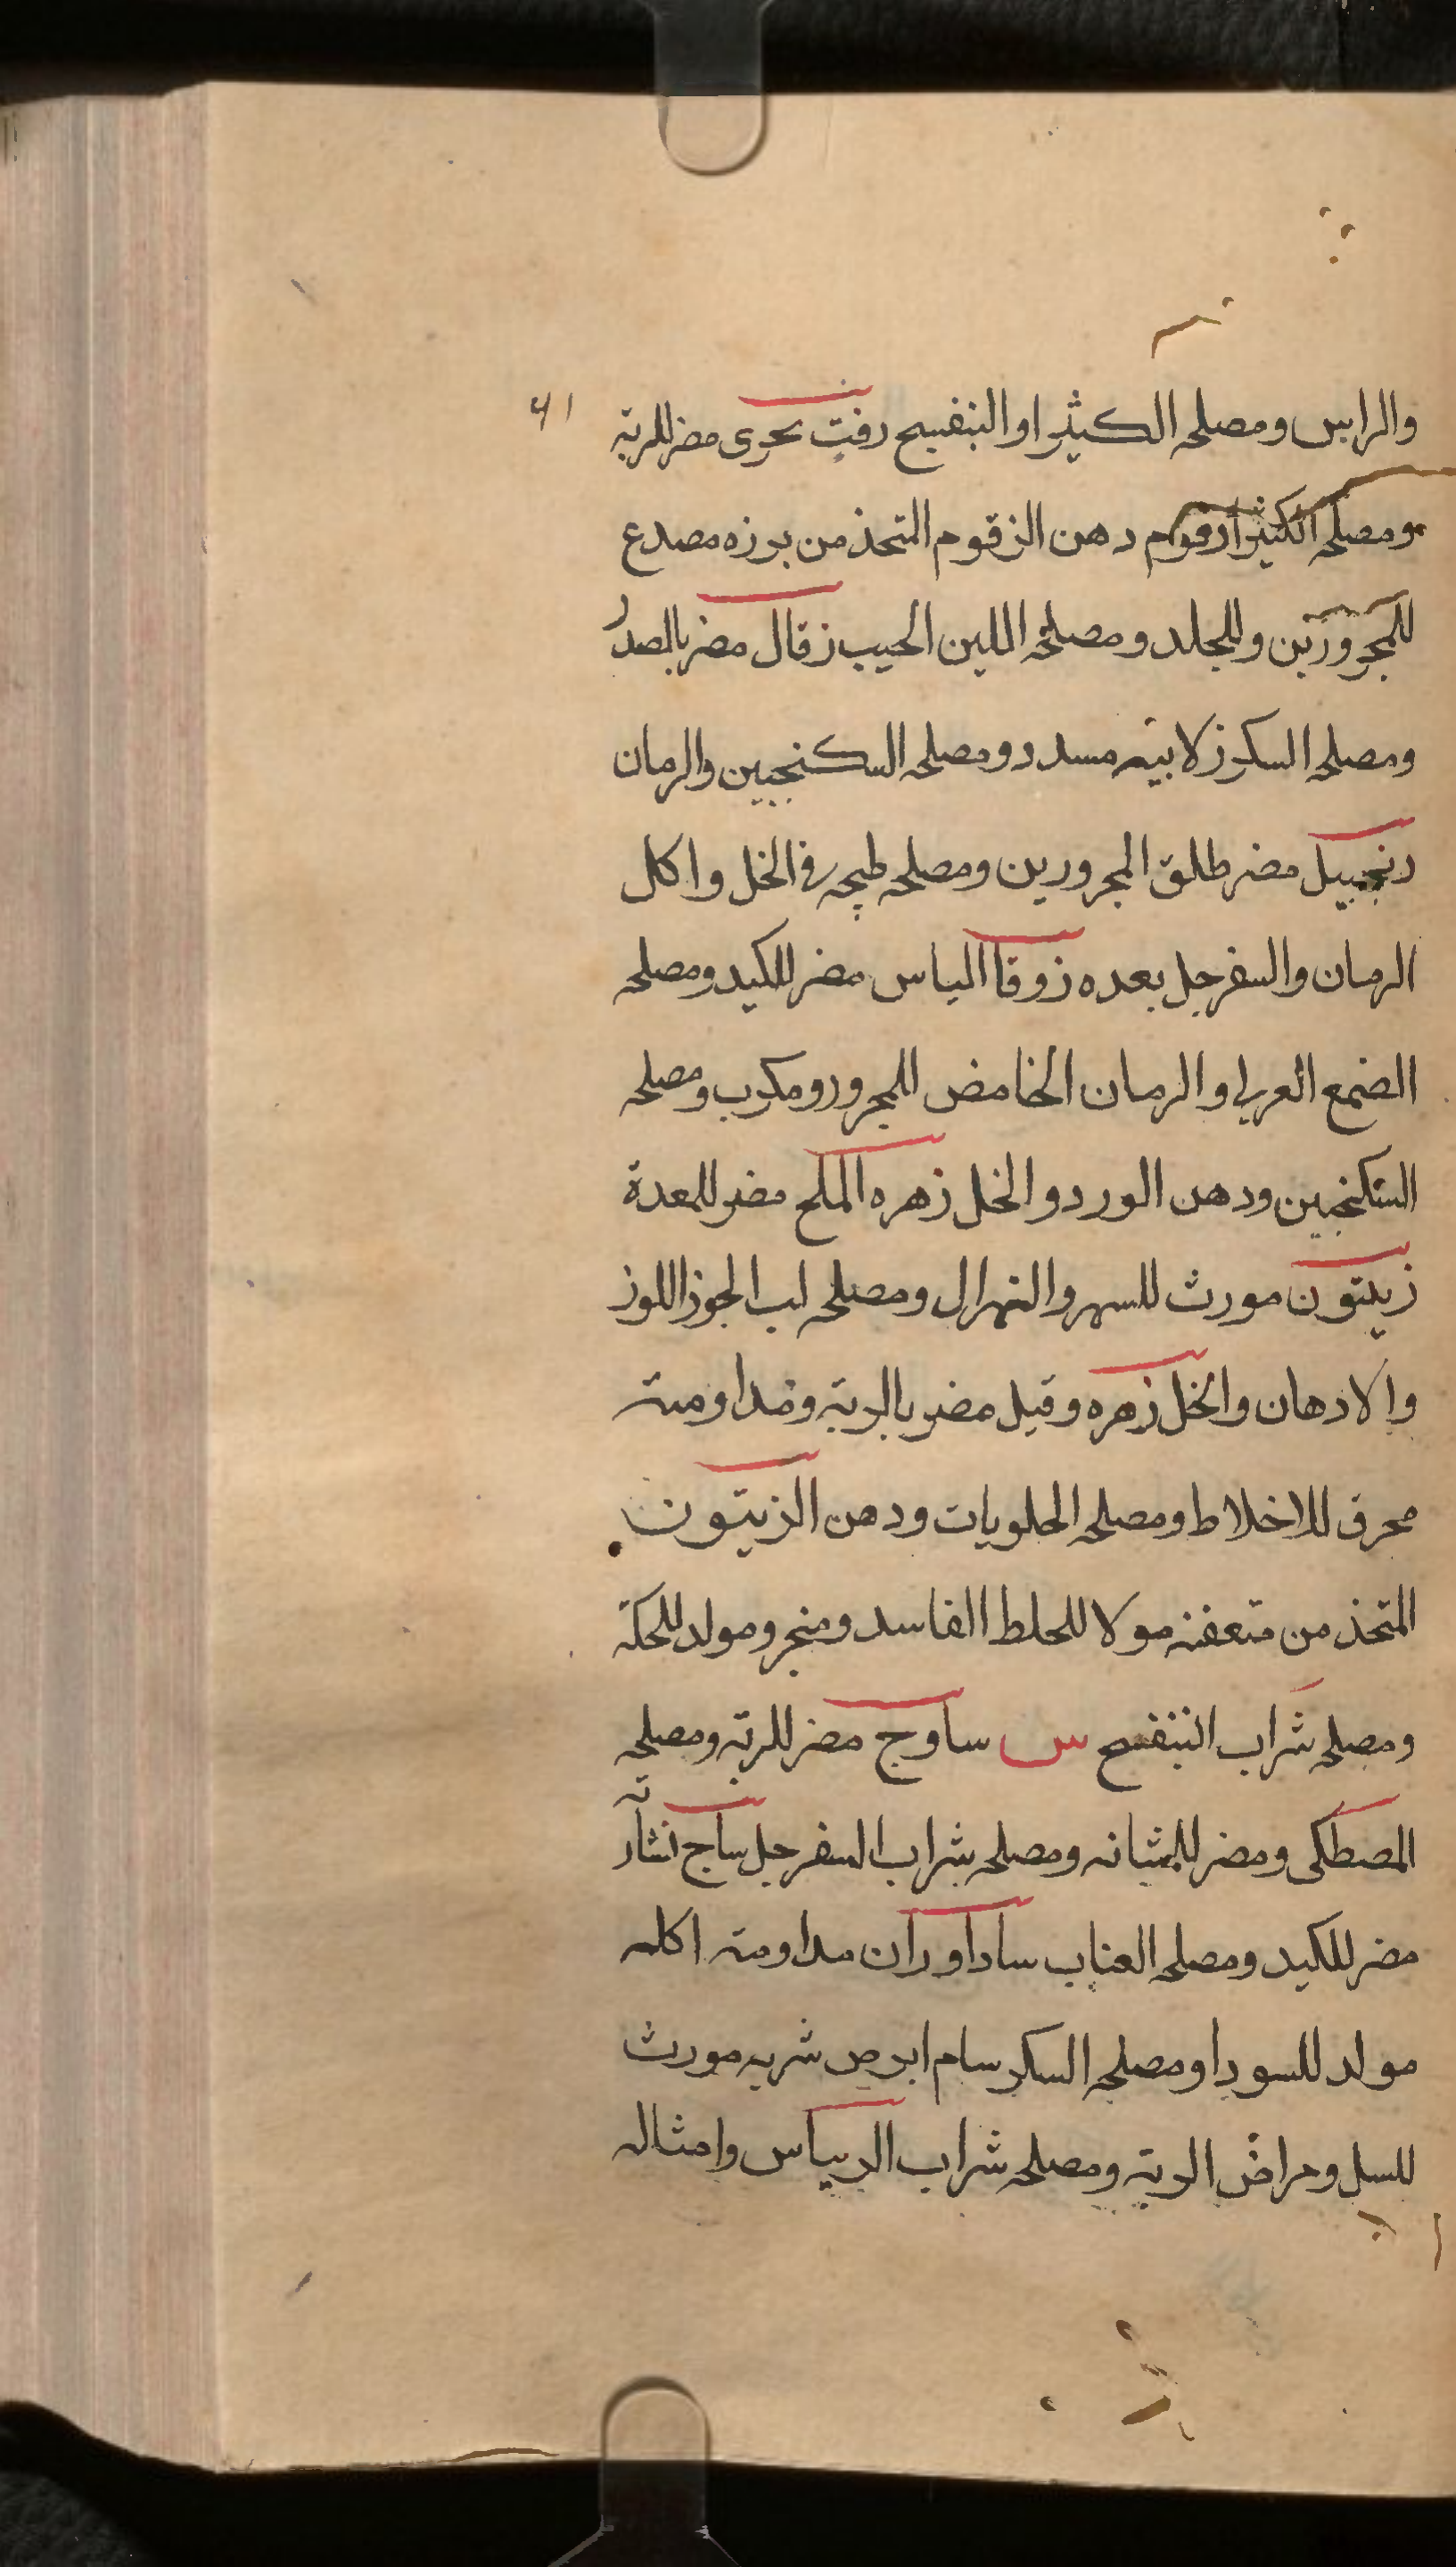 والراس ومصلحه الكثيرا والبنفسج زفت بحرى مضر للرية ٤١
ومصلحه الكثيرا زقوم دهن الزقوم المتخذ من بوزه مصدع
للمحرورين وللجلد ومصلحه اللبن الحيب زقال مضر بالصدر
ومصلحه السكر زلابيه مسدد ومصلحه السكنجبين والرمان
زنجبيل مضر طلق المحرورين ومصلحه طبخه فى الخل واكل
الرمان والسفرجل بعده زوفا الياس مضر للكبد ومصلحه
الضمع العربى والرمان الحامض للمحرور ومكرب ومصلحه
السكنجبين ودهن الورد والخل زهره الملح مضر للمعدة
زيتون مورث للسهر والهزال ومصلحه لب الجوز اللوز
والادهان والخل زهره وقيل مضر بالرية ومداومته
محرق للاخلاط ومصلحه الحلويات ودهن الزيتون
المتخذ من متعفنه مولا للخلط الفاسد ومنجر ومولد للحكة
ومصلحه شراب البنفسج س ساوج مضر للرية ومصلحه
المصطكى ومضر للمثانه ومصلحه شراب السفرجل ساج نشارته
مضر للكبد ومصلحه العناب ساداوران مداومته اكله
مولد للسودا ومصلحه السكر سام ابرص شربه مورث
للسل ومراض الرية ومصلحه شراب الريباس وامثاله